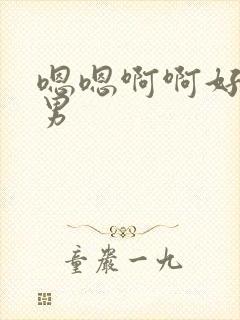 嗯嗯啊啊好
男
童严一九